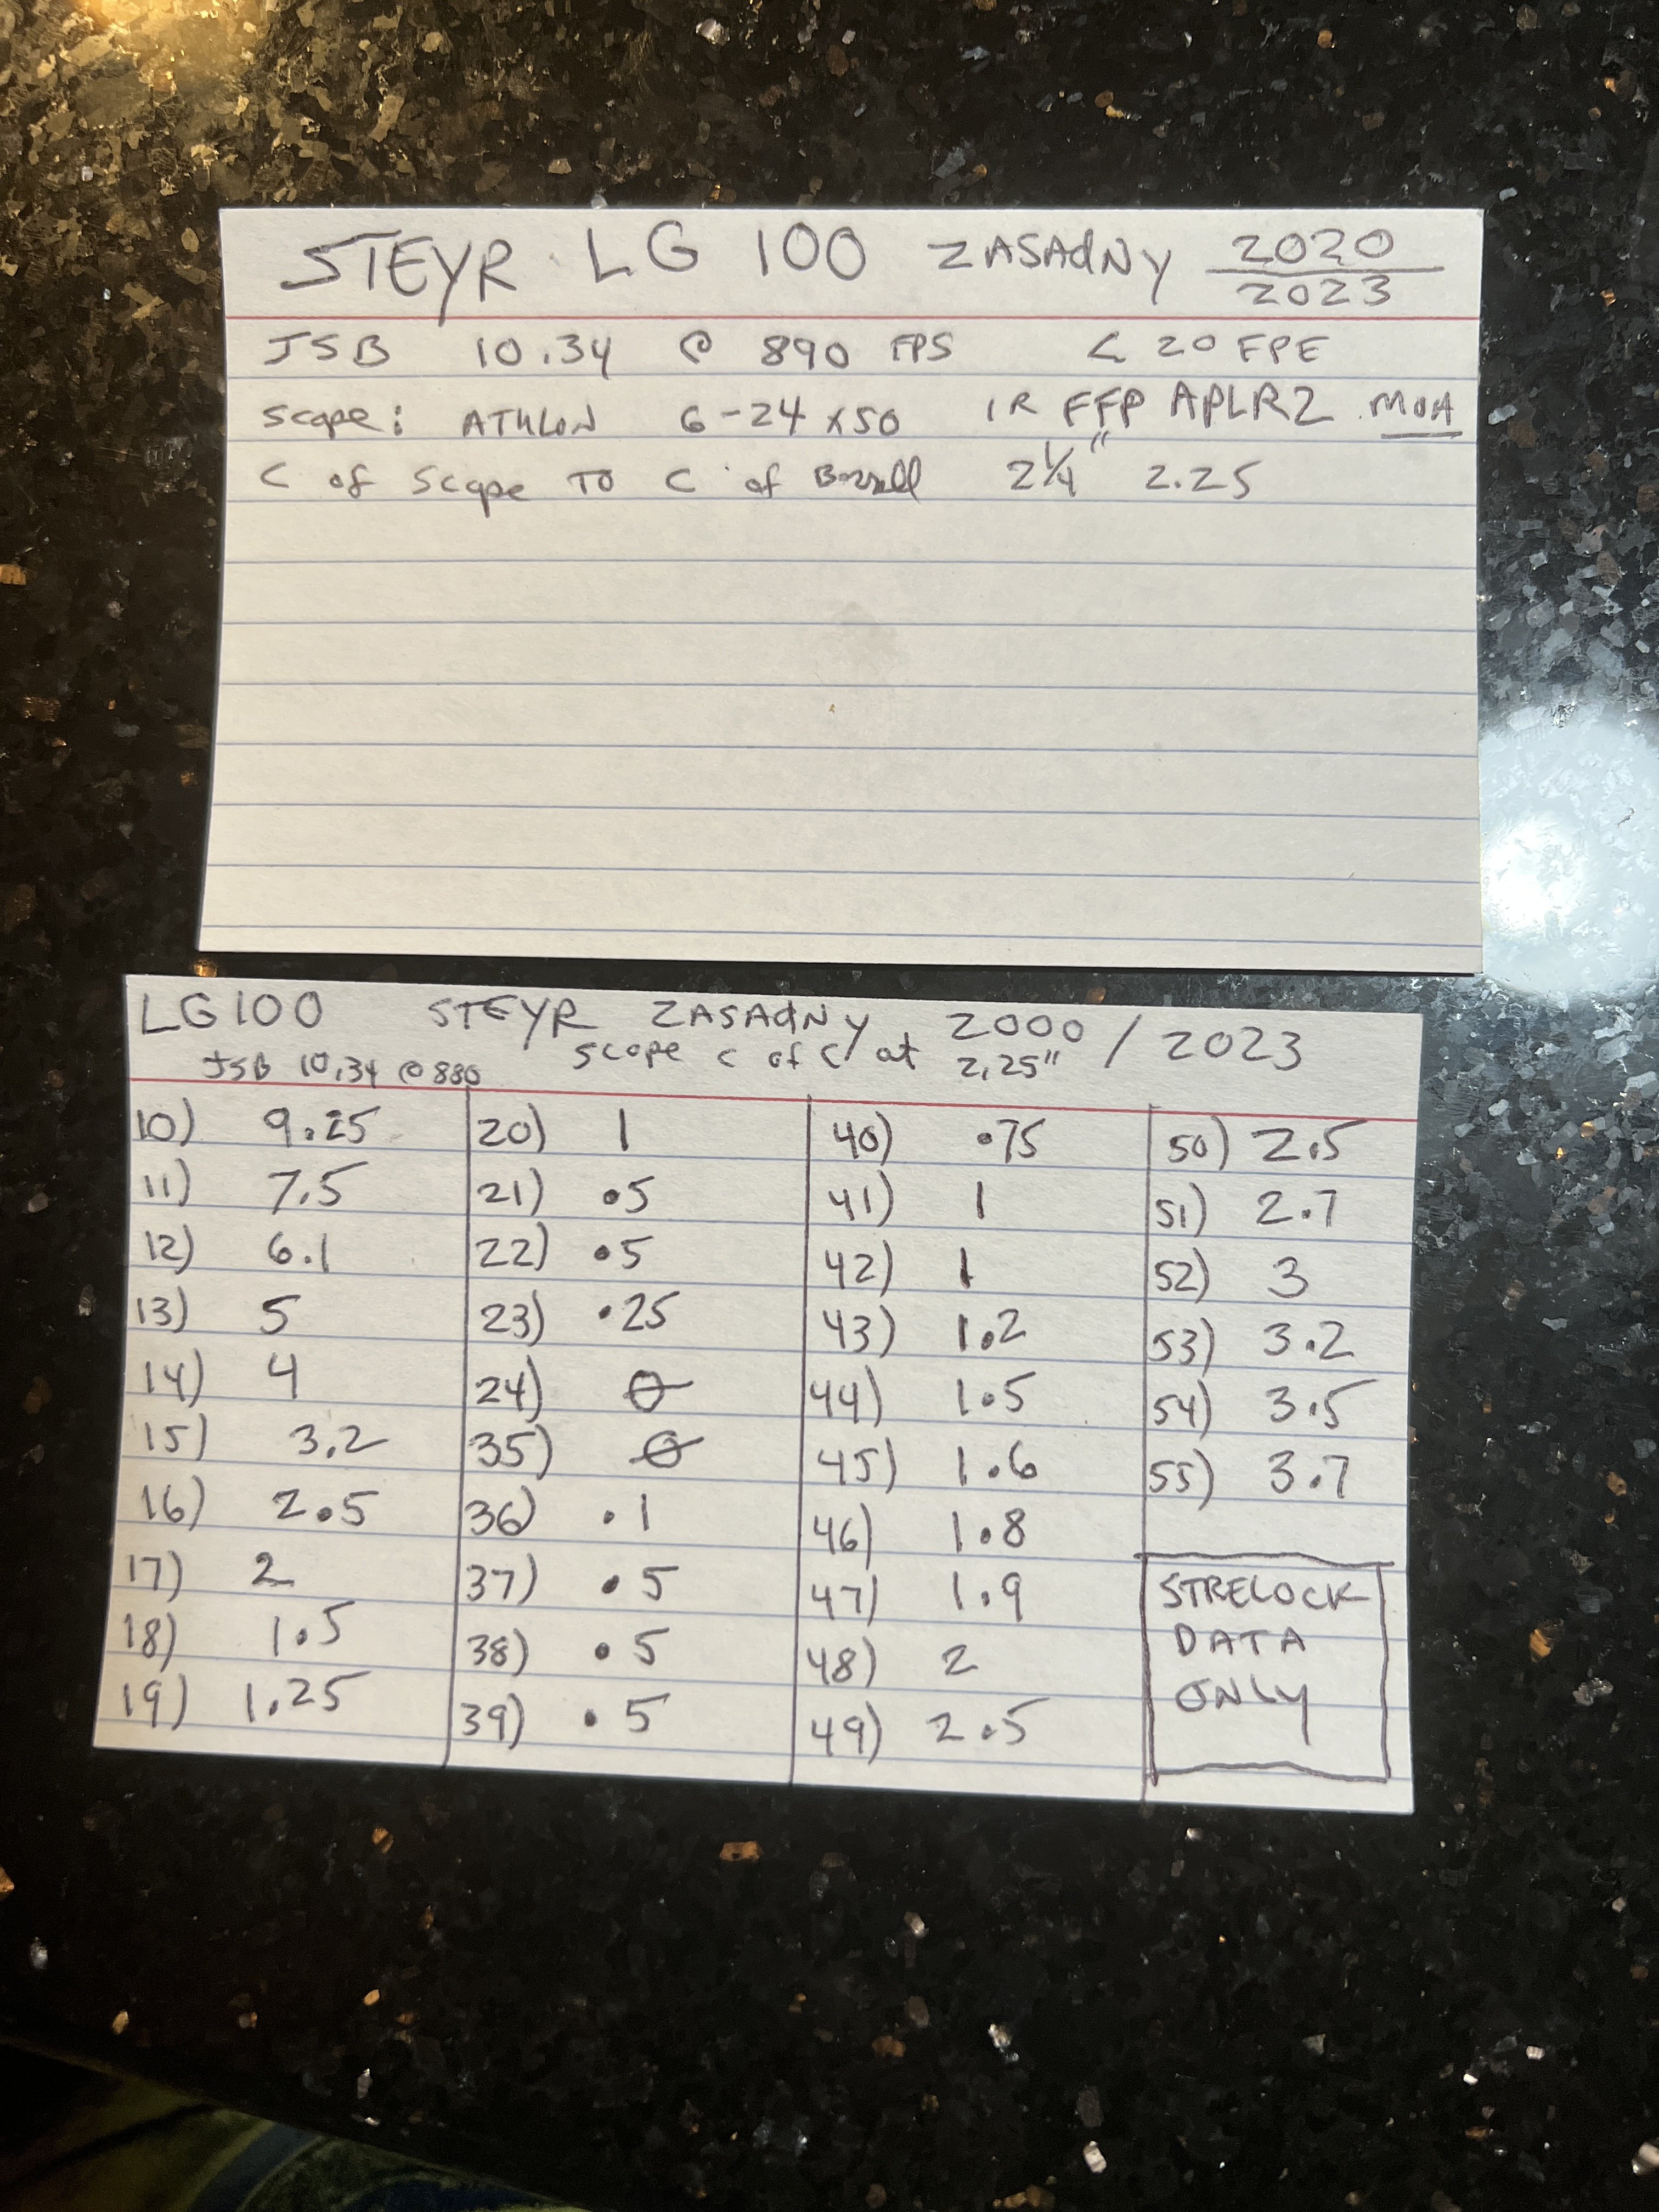 STEYR LG 100 ZASAdNY 2020
2023
JSB 10.34 @ 890 FPS < 20 FPE
Scope: ATHLON 6-24 x50 IR FFP APLR2 MOA
C of Scope TO C of Barrell 2 1/4" 2.25
LG100 STEYR ZASAdNY 2000 / 2023
JSB 10.34 @ 880 Scope C of C at 2.25"
10) 9.25
11) 7.5
12) 6.1
13) 5
14) 4
15) 3.2
16) 2.5
17) 2
18) 1.5
19) 1.25
20) 1
21) .5
22) .5
23) .25
24) 0
35) 0
36) .1
37) .5
38) .5
39) .5
40) .75
41) 1
42) 1
43) 1.2
44) 1.5
45) 1.6
46) 1.8
47) 1.9
48) 2
49) 2.5
50) 2.5
51) 2.7
52) 3
53) 3.2
54) 3.5
55) 3.7
STRELOCK
DATA
ONLY